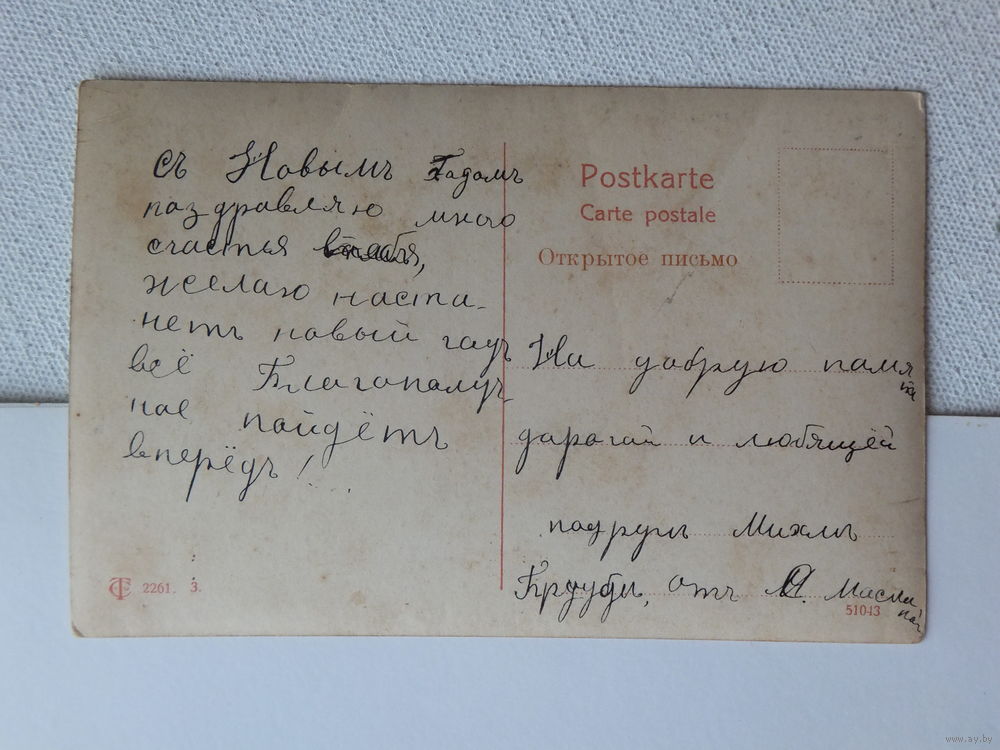 съ Новымъ Гадомъ
паздравляю много
счастья
желаю наста-
нетъ новый гадъ
всё Благополуч-
ное пойдётъ
вперёдъ!...
Postkarte
Carte postale
Открытое письмо
На добрую памя
ть
дарагой и любящей
подруги
отъ О. Масла
2261. 3.
51043
www.ay.by